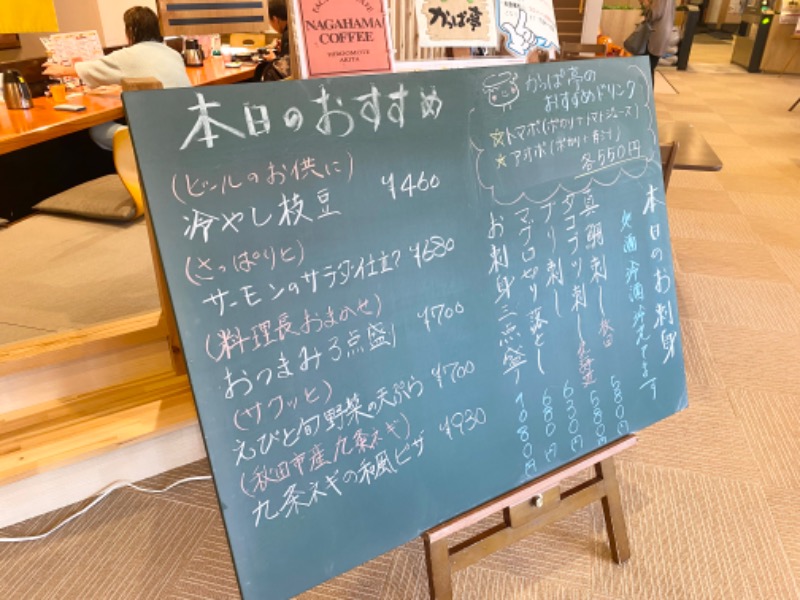 NAGAHAMA
COFFEE
かっぱ亭
本日のおすすめ
(ビールのお供に)
冷やし枝豆 ¥460
(さっぱりと)
サーモンのサラダ仕立て ¥680
(料理長おまかせ)
おつまみ3点盛り ¥700
(サクッと)
えびと旬野菜の天ぷら ¥700
(秋田市産九条ネギ)
九条ネギの和風ピザ ¥930
かっぱ亭の
おすすめドリンク
☆トマポ(ポカリ+トマトジュース)
☆アオポ(ポカリ+青汁)
各550円
本日のお刺身
冷酒冷えてます
真鯛刺し 580円
タコブツ刺し 北海道 580円
ブリ刺し 630円
マグロゼリ落とし 680円
お刺身三点盛り 1080円